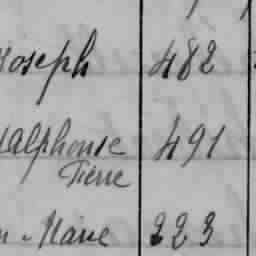 Joseph 482
Alphonse 491
Pierre
Marie 223